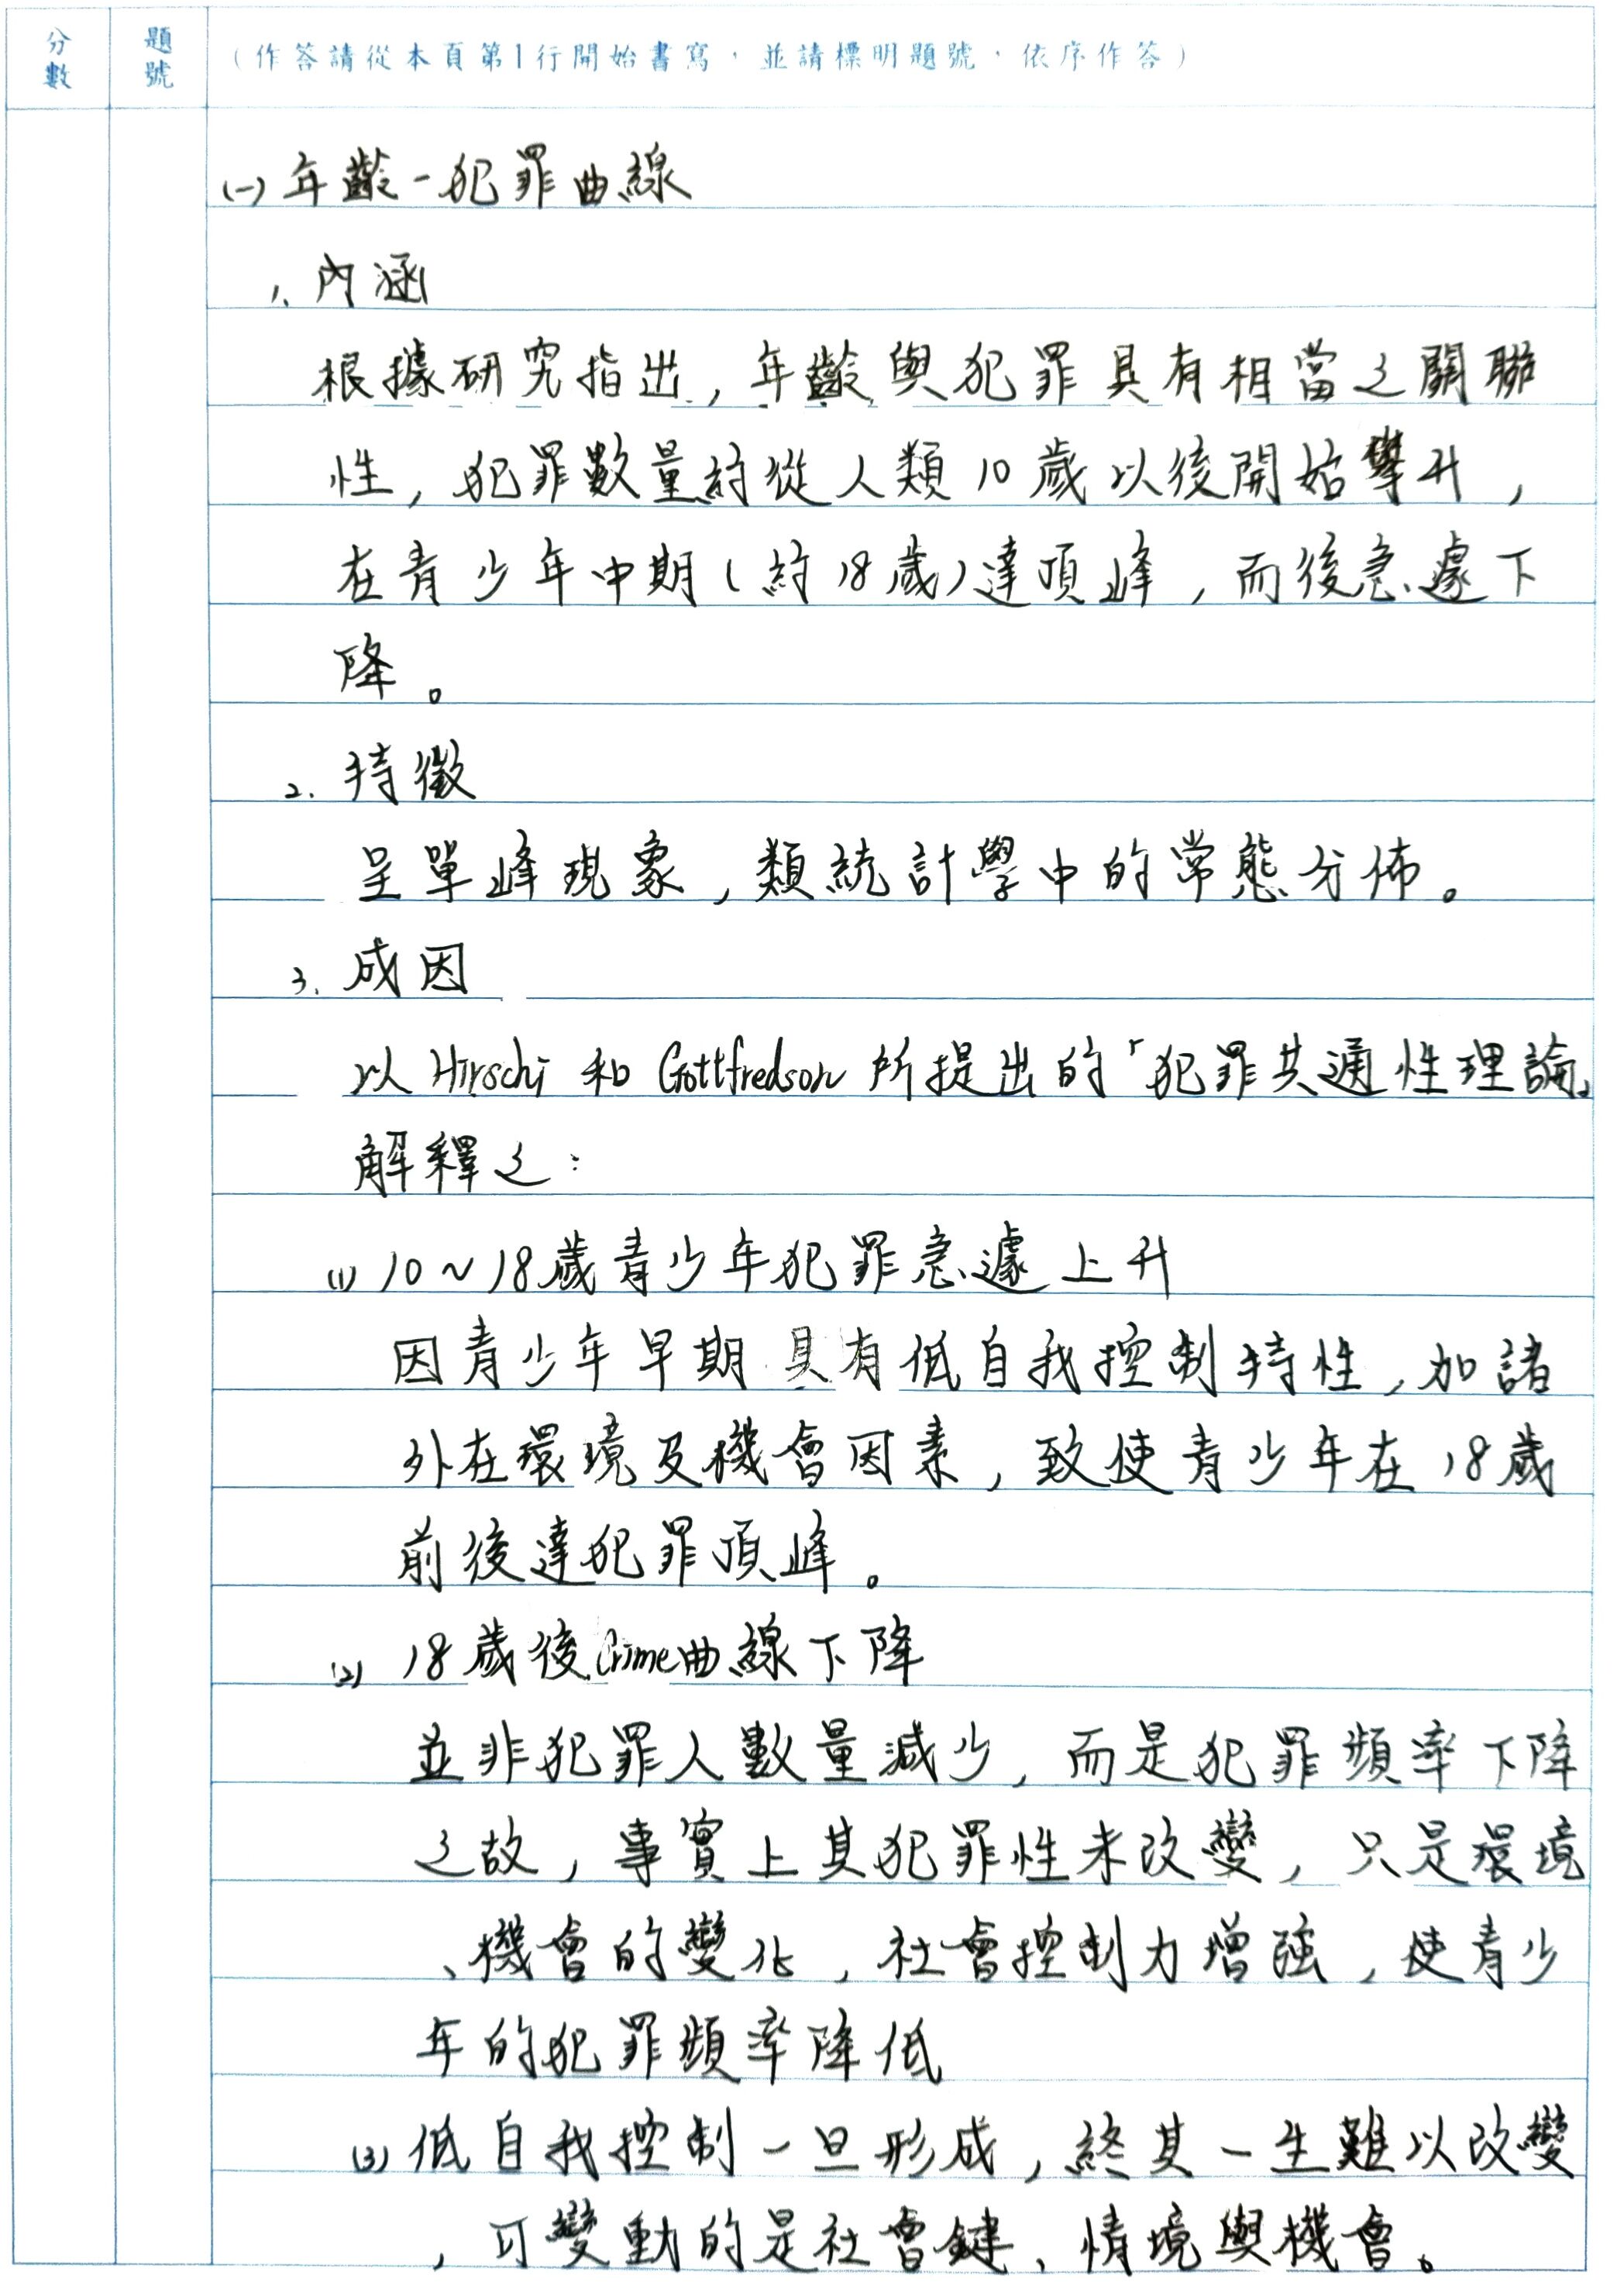 分數
題號
（作答請從本頁第1行開始書寫，並請標明題號，依序作答）
(一)年齡-犯罪曲線
1.內涵
根據研究指出，年齡與犯罪具有相當之關聯
性，犯罪數量約從人類10歲以後開始攀升，
在青少年中期(約18歲)達頂峰，而後急遽下
降。
2.特徵
呈單峰現象，類統計學中的常態分佈。
3.成因
以Hirschi和Gottfredson所提出的「犯罪共通性理論」
解釋之：
(1)10~18歲青少年犯罪急遽上升
因青少年早期具有低自我控制特性，加諸
外在環境及機會因素，致使青少年在18歲
前後達犯罪頂峰。
(2)18歲後Crime曲線下降
並非犯罪人數量減少，而是犯罪頻率下降
之故，事實上其犯罪性未改變，只是環境
、機會的變化，社會控制力增強，使青少
年的犯罪頻率降低
(3)低自我控制一旦形成，終其一生難以改變
，可變動的是社會鍵、情境與機會。